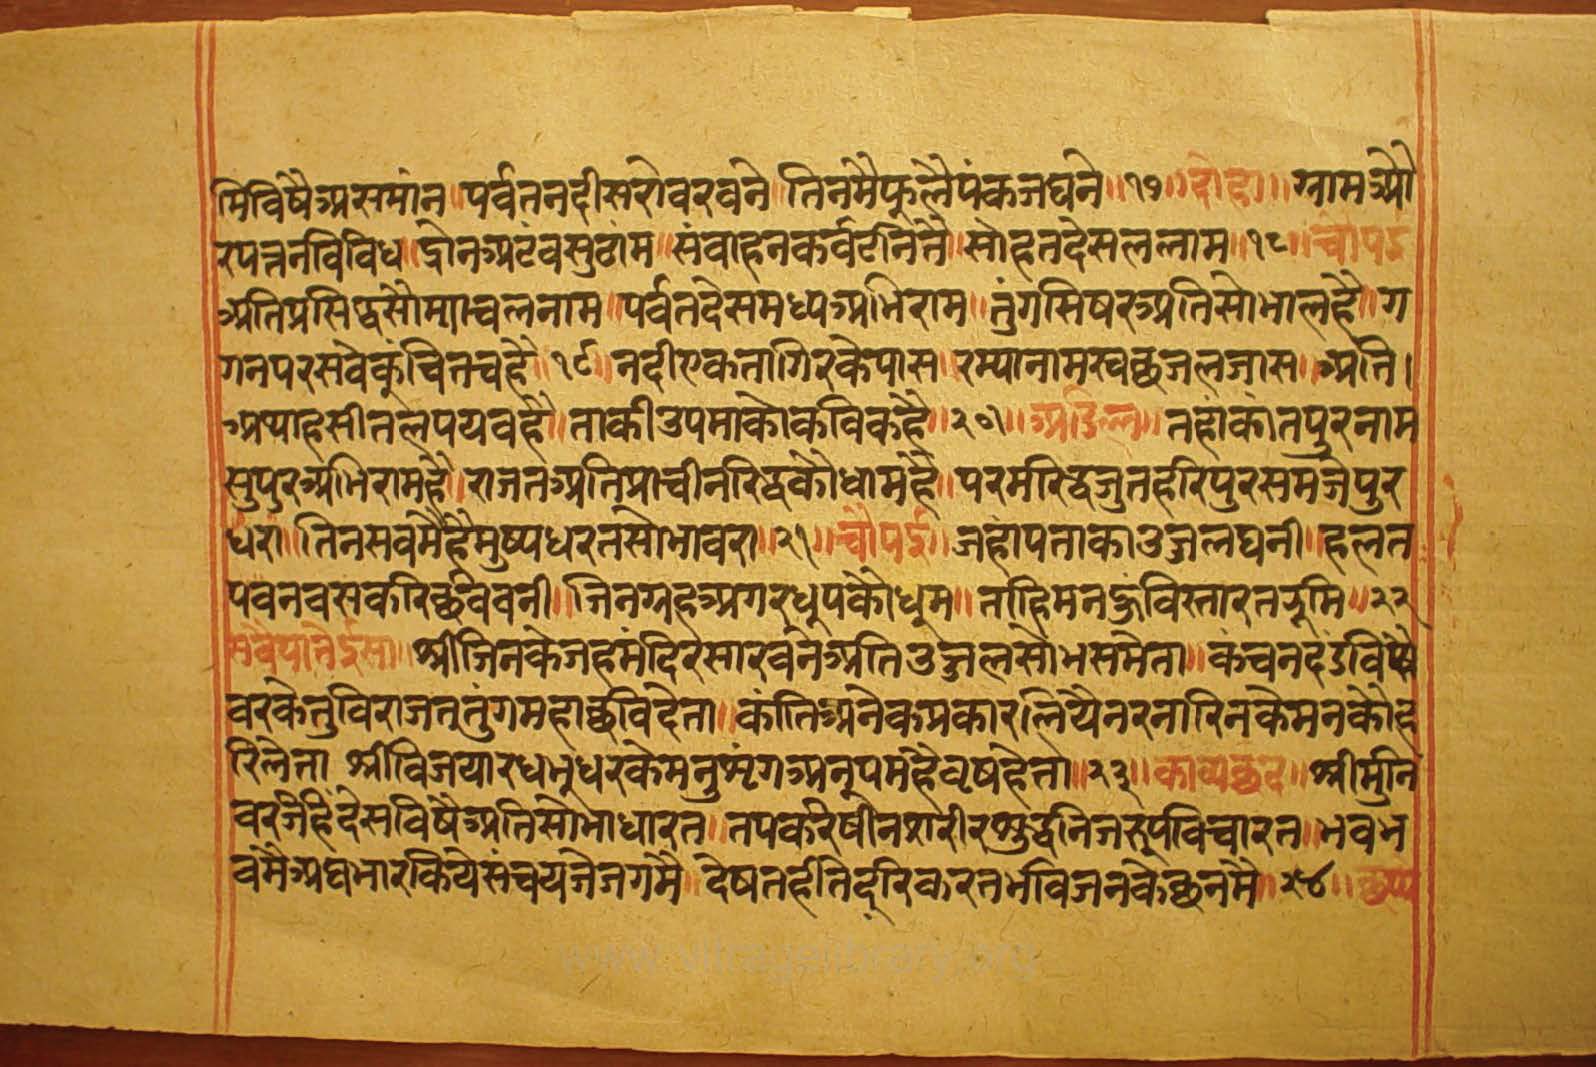 मिविषैअसमांन॥पर्वतनदीसरोवरवने॥तिनमैफुलैपंकजघने॥१७॥दोहा॥ग्रामऔ
रपत्तनविविध॥द्रोनअटंवसुठांम॥संवाहनकर्वटनितै॥सोहतदेसललाम॥१८॥चौपई
अतिप्रसिद्धसौम्याचलनाम॥पर्वतदेसमध्यअभिराम॥तुंगसिषरअतिसोभालहै॥ग
गनपरसवैकुंचितचहै॥१९॥नदीएकतागिरकेपास॥रम्यानामस्वच्छजलजास॥अति।
अथाहसीतलपयवहै॥ताकीउपमाकोकविकहै॥२०॥अडिल्ल॥तहांकांतपुरनाम
सुपुरअभिरामहै॥राजतअतिप्राचीनरिद्धकौधामहै॥परमरिद्धजुतहरिपुरसमजेपुर
धरा॥तिनसवमैहैमुष्यधरतसोभावरा॥२१॥चौपई॥जहांपताकाउज्जलघनी॥हलत
पवनवसकरिछववनी॥जिनग्रहअगरधुपकौधुम॥ताहिमनहुंविस्तारतझुमि॥२२
सवैयातेईसा॥श्रीजिनकेजहमंदिरसारवनेअतिउज्जलसोभसमेता॥कंचनदंडविषै
वरकेतुविराजततुंगमहाछविदेता॥कांतिअनेकप्रकारलियैनरनारिनकेमनकौह
रिलेता॥श्रीविजयारधभुधरकेमनुश्रृंगअनूपमहैवृषहेता॥२३॥काव्यछंद॥श्रीमुनि
वरजिहिंदेसविषैअतिसोभाधारत॥तपकरिषीनशरीरशुद्धनिजरूपविचारत॥भवभ
वमैअघभारकियेसंचयजेजगमै॥देषतहीतेदूरिकरतभविजनकेछनमै॥२४॥छप्पै
www.vitragelibrary.org